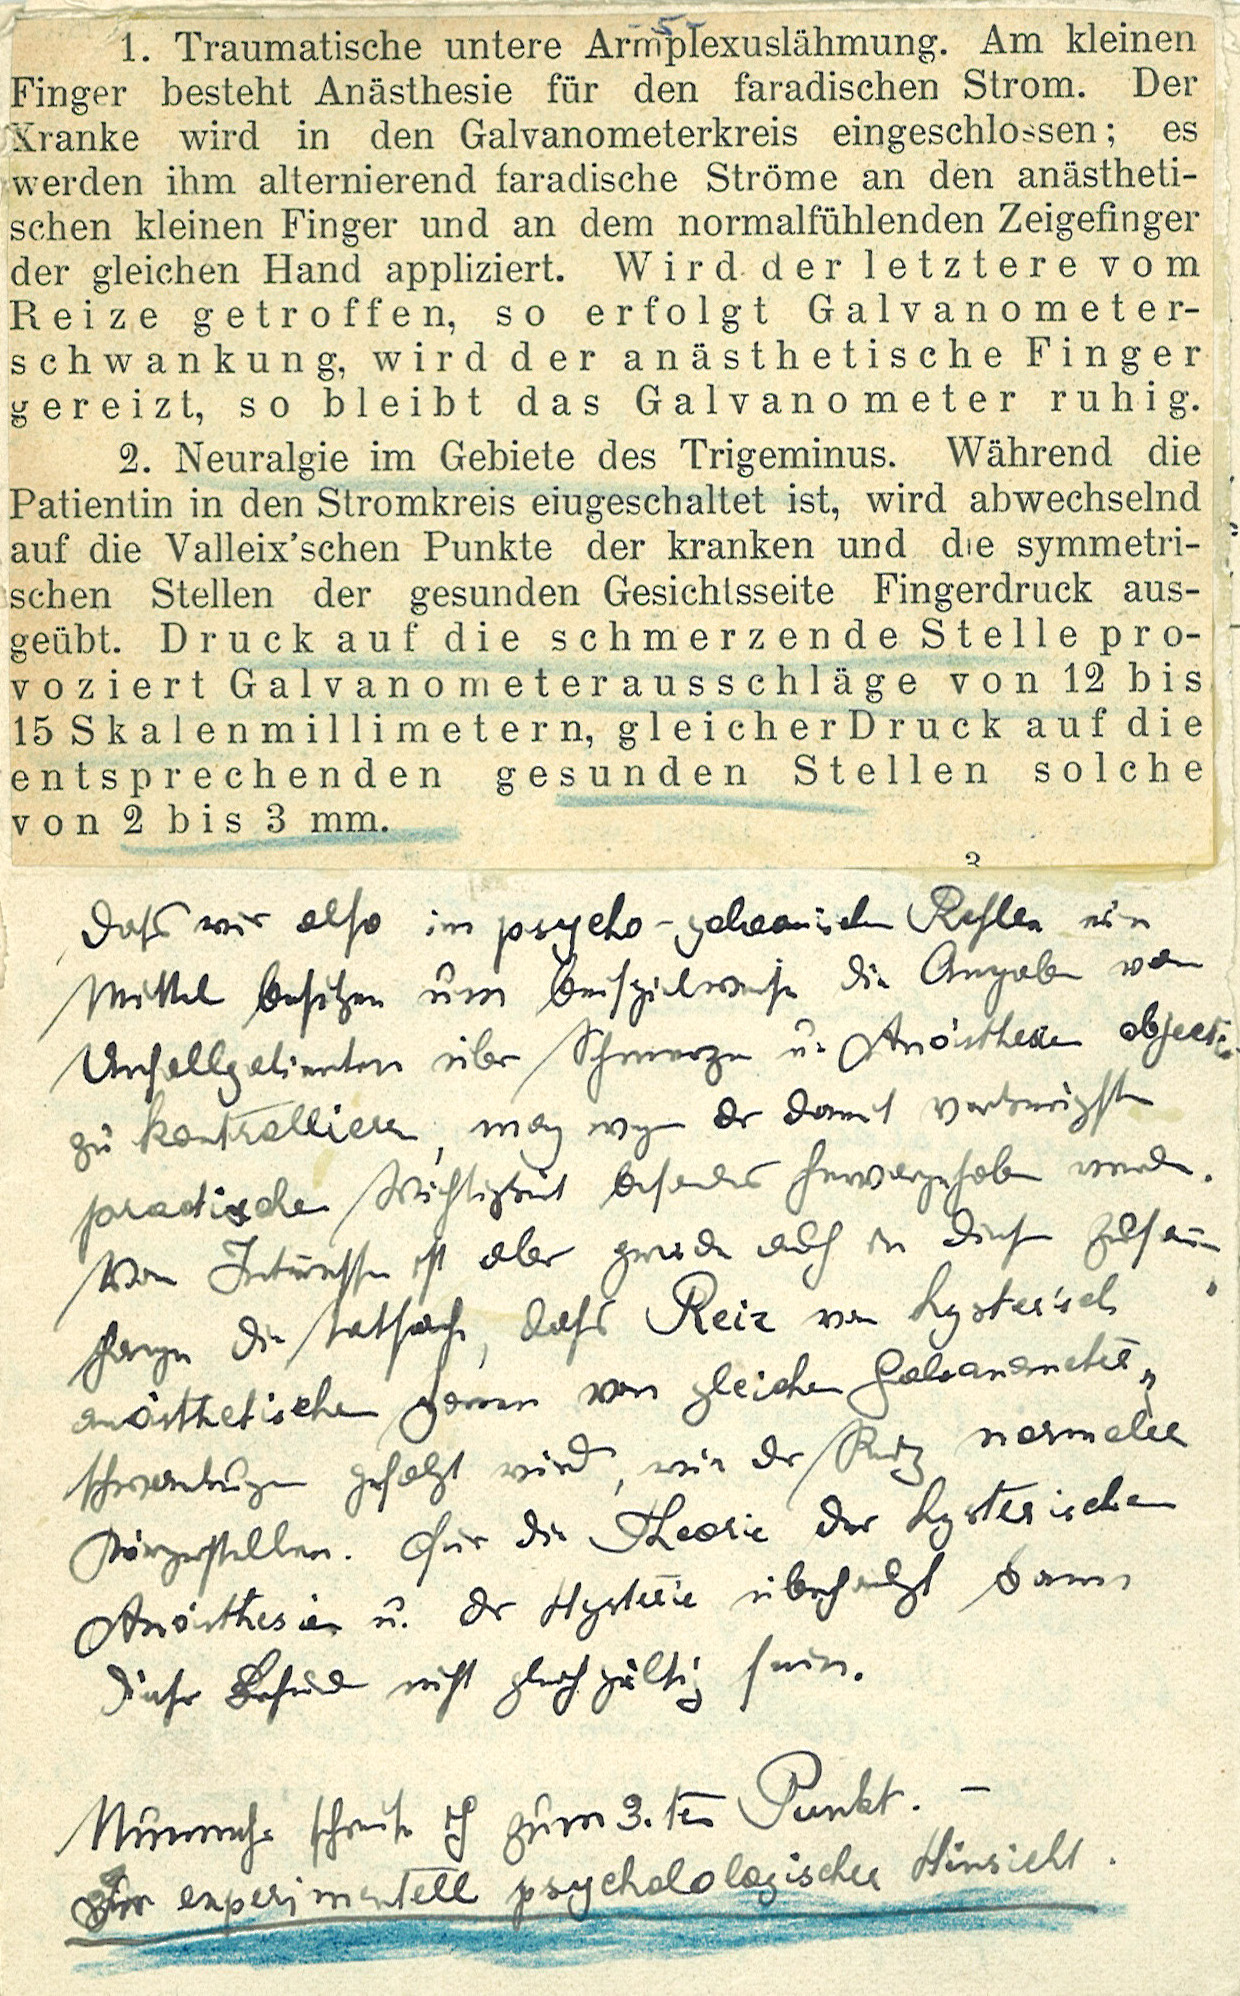 - 5 -
1. Traumatische untere Armplexuslähmung. Am kleinen
Finger besteht Anästhesie für den faradischen Strom. Der
Kranke wird in den Galvanometerkreis eingeschlossen; es
werden ihm alternierend faradische Ströme an den anästheti-
schen kleinen Finger und an dem normalfühlenden Zeigefinger
der gleichen Hand appliziert. Wird der letztere vom
Reize getroffen, so erfolgt Galvanometer-
schwankung, wird der anästhetische Finger
gereizt, so bleibt das Galvanometer ruhig.
2. Neuralgie im Gebiete des Trigeminus. Während die
Patientin in den Stromkreis eiugeschaltet ist, wird abwechselnd
auf die Valleix'schen Punkte der kranken und die symmetri-
schen Stellen der gesunden Gesichtsseite Fingerdruck aus-
geübt. Druck auf die schmerzende Stelle pro-
voziert Galvanometerausschläge von 12 bis
15 Skalenmillimetern, gleicher Druck auf die
entsprechenden gesunden Stellen solche
von 2 bis 3 mm.
Dass wir also im psycho-galvanischen Reflex ein
Mittel besitzen um beispielweise die Angaben von
Unfallpatienten über Schmerzen u. Anästhesien objectiv
zu kontrollieren, mag wegen der damit verknüpften
practischen Wichtigkeit besonders hervorgehoben werden.
Von Interesse ist aber gerade auch in diesem Zusam-
hange die Tatsache, dass Reiz von hysterisch
anästhetischen von gleichen Galvanometer-
schwankungen gefolgt wird, wie der Reiz normaler
Körperstellen. Für die Theorie der hysterischen
Anästhesien u. der Hysterie überhaupt kann
dieser Befund nicht gleichgültig sein.
Nunmehr schreite ich zum 3.ten Punkt. –
Zur experimentell psychologischer Hinsicht.